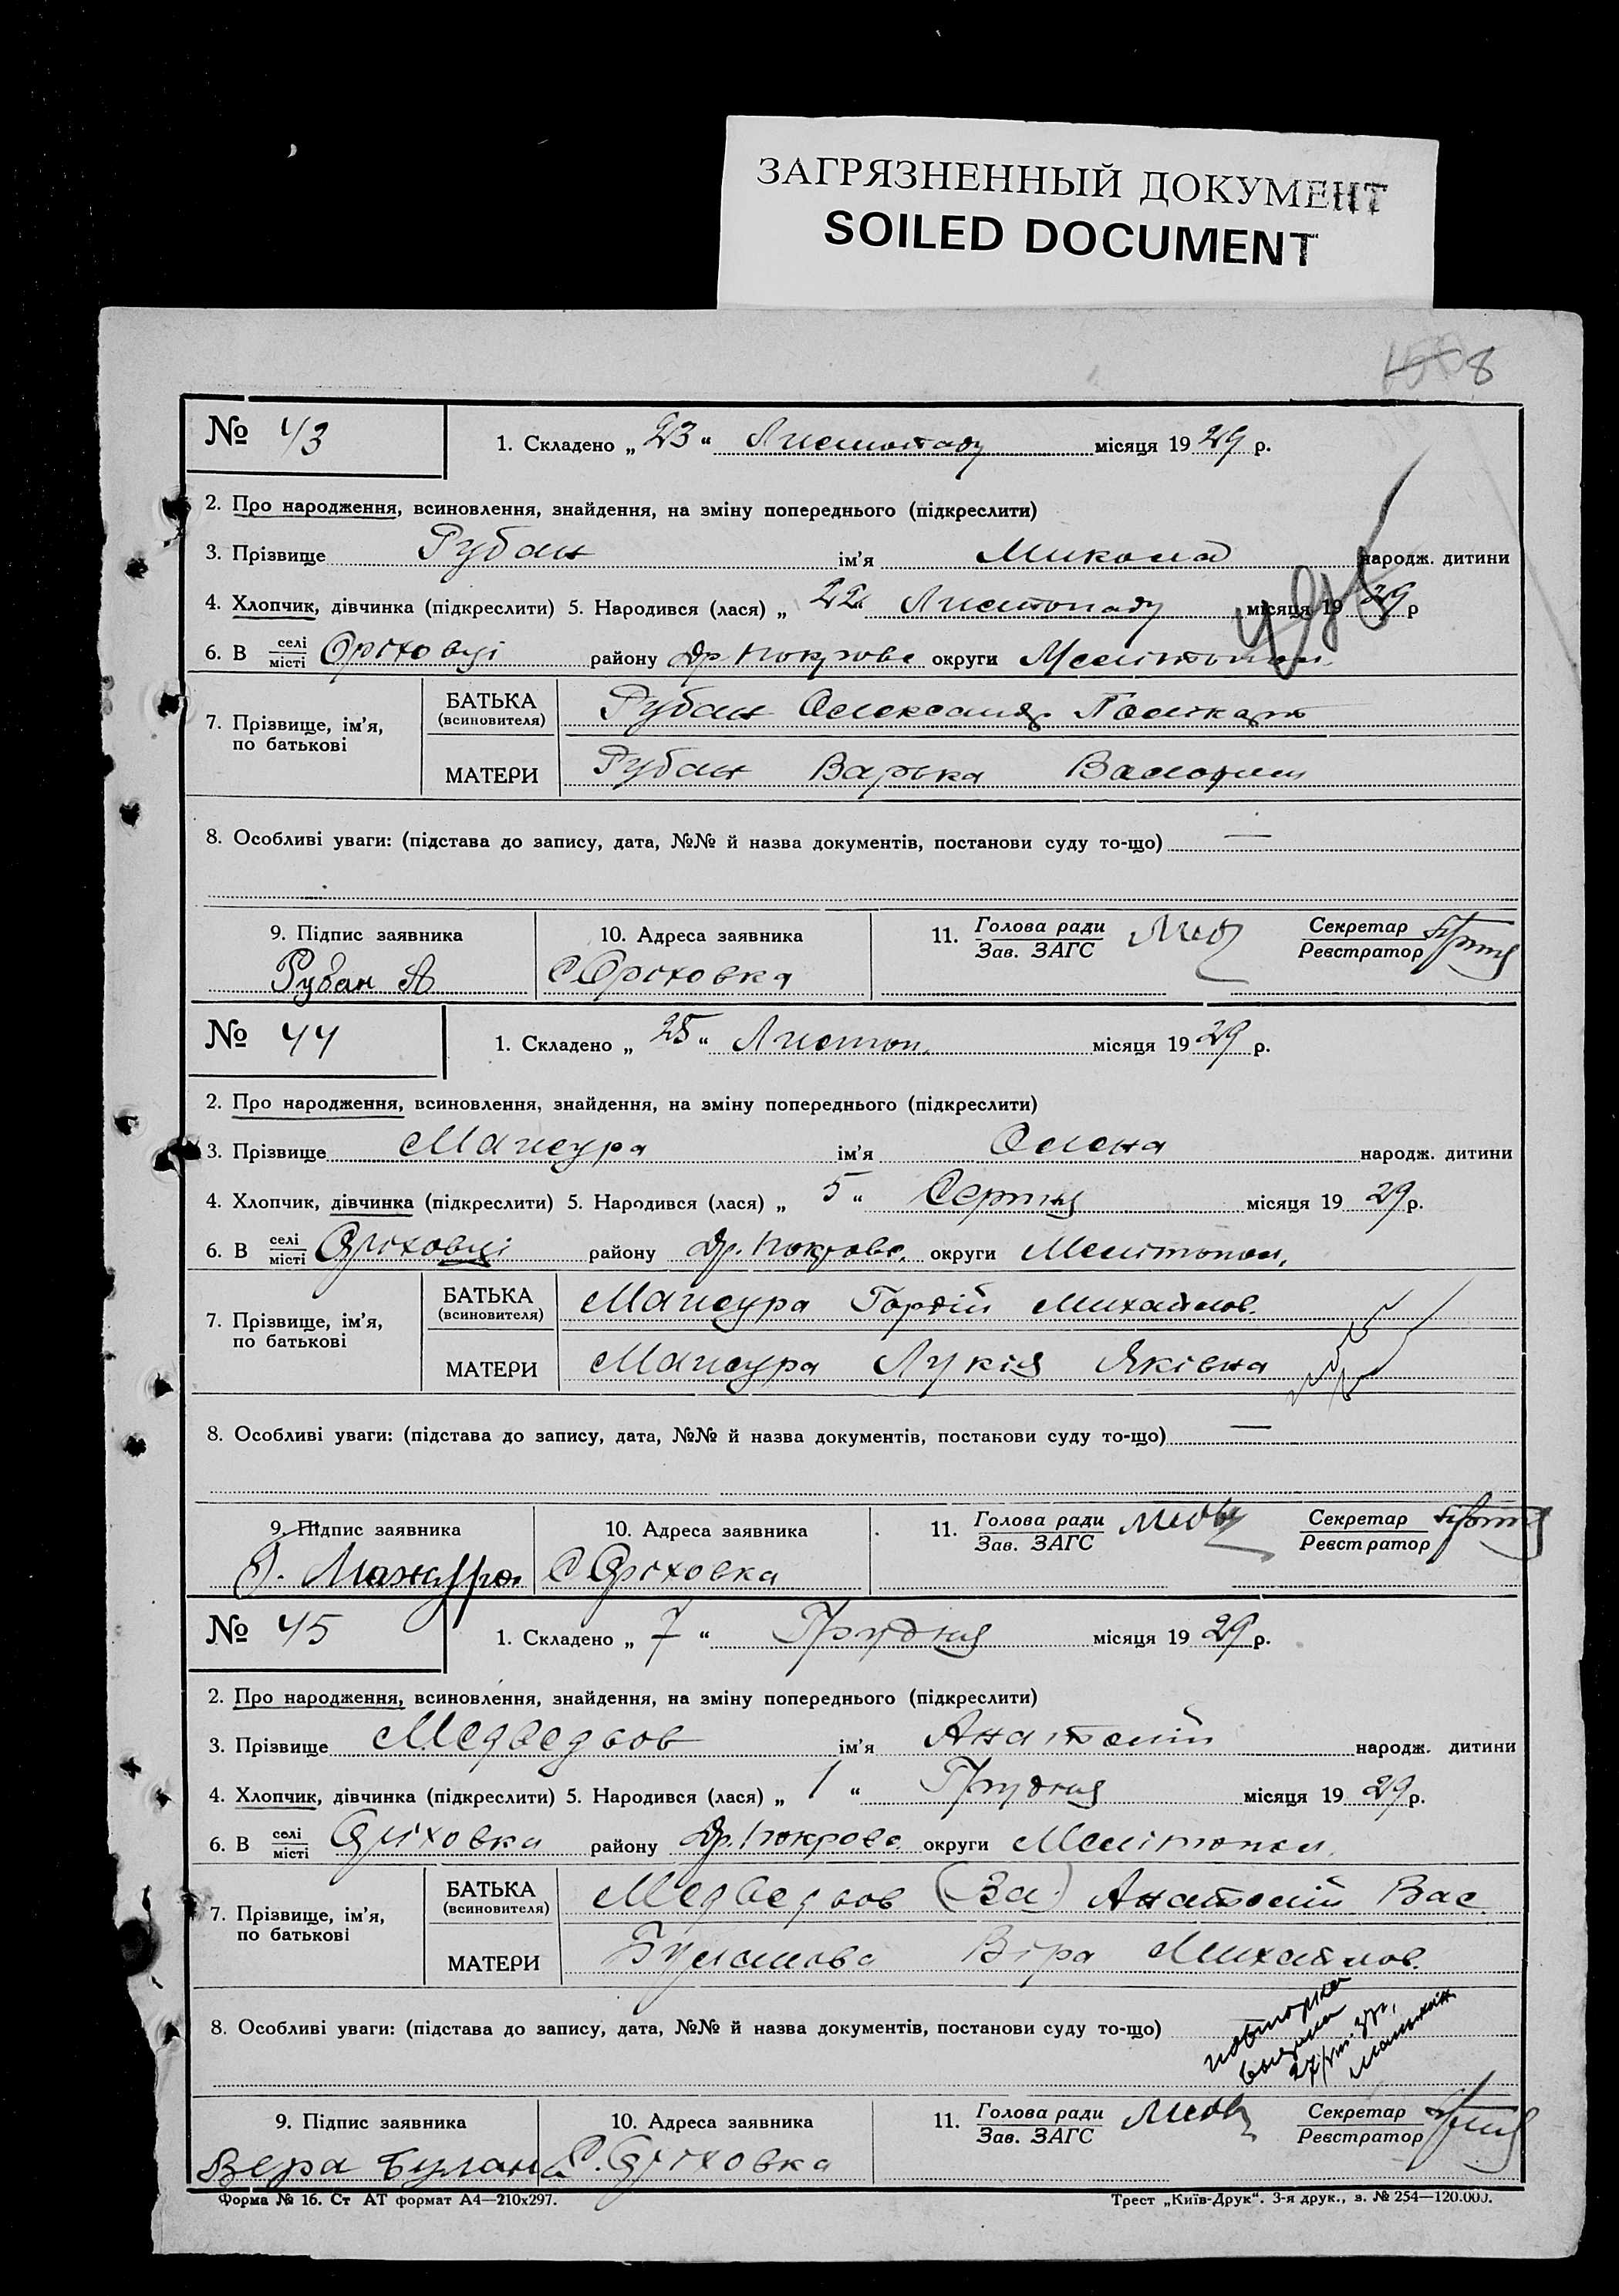 ЗАГРЯЗНЕННЫЙ ДОКУМЕНТ
SOILED DOCUMENT
8
№ 43 1. Складено „ 23 “ Листопаду місяця 1929 р.
2. Про народження, всиновлення, знайдення, на зміну попереднього (підкреслити)
3. Прізвище Рубан ім’я Микола народж. дитини
4. Хлопчик, дівчинка (підкреслити) 5. Народився (лася) „ 22 Листопаду місяця 1929 р
6. В селі місті Оріховці району Др. Покровс округи Мелітопол.
7. Прізвище, ім’я, по батькові БАТЬКА (всиновителя) Рубан Олександ. Полікарп
МАТЕРИ Рубан Варька
8. Особливі уваги: (підстава до запису, дата, №№ й назва документів, постанови суду то-що) —
9. Підпис заявника 10. Адреса заявника 11. Голова ради Зав. ЗАГС Секретар Реєстратор
Рубан А С Оріховка
№ 44 1. Складено „ 25 “ Листоп. місяця 1929 р.
2. Про народження, всиновлення, знайдення, на зміну попереднього (підкреслити)
3. Прізвище ім’я Олена народж. дитини
4. Хлопчик, дівчинка (підкреслити) 5. Народився (лася) „ 5 “ Серпня місяця 1929 р.
6. В селі місті Оріховці району Др. Покровс. округи Мелітопол.
7. Прізвище, ім’я, по батькові БАТЬКА (всиновителя) Гордій Михайлов.
МАТЕРИ Лукія Яківна
8. Особливі уваги: (підстава до запису, дата, №№ й назва документів, постанови суду то-що) —
9. Підпис заявника 10. Адреса заявника 11. Голова ради Зав. ЗАГС Секретар Реєстратор
Г. Мажура С Оріховка
№ 45 1. Складено „ 7 “ Грудня місяця 1929 р.
2. Про народження, всиновлення, знайдення, на зміну попереднього (підкреслити)
3. Прізвище Медведьов ім’я Анатолій народж. дитини
4. Хлопчик, дівчинка (підкреслити) 5. Народився (лася) „ 1 “ Грудня місяця 1929 р.
6. В селі місті Оріховка району Др. Покровс. округи Мелітопол.
7. Прізвище, ім’я, по батькові БАТЬКА (всиновителя) Медведьов (За.) Анатолій Вас.
МАТЕРИ Буланова Віра Михайлов.
8. Особливі уваги: (підстава до запису, дата, №№ й назва документів, постанови суду то-що)
9. Підпис заявника 10. Адреса заявника 11. Голова ради Зав. ЗАГС Секретар Реєстратор
Вера Булан С. Оріховка
Форма № 16. Ст АТ формат А4—210х297. Трест „Київ-Друк“. 3-я друк., з. № 254—120.000.